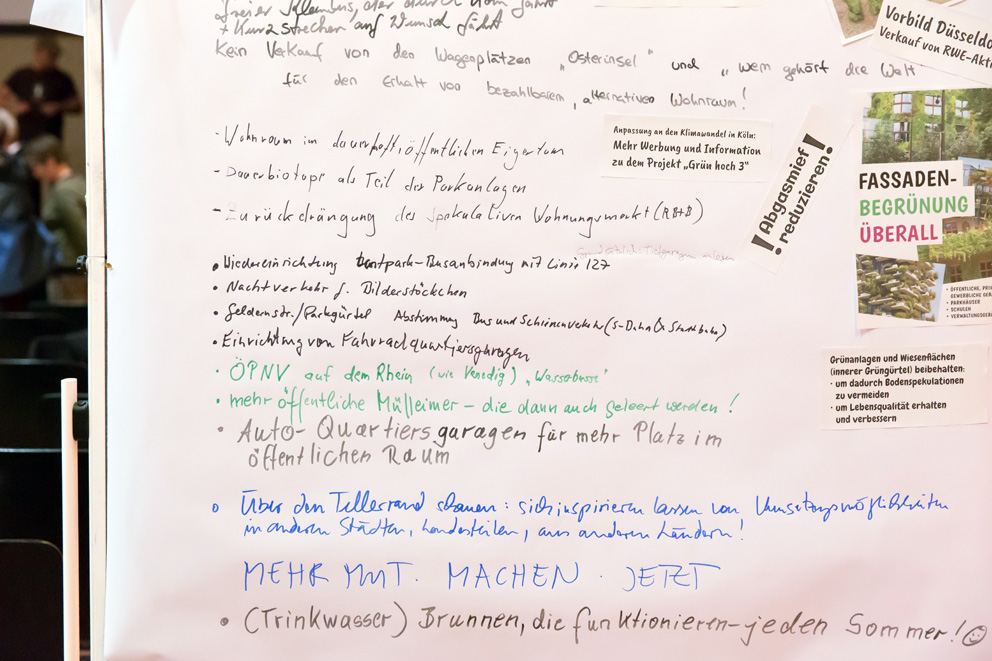 + Kurzstrecken auf Wunsch fährt
Kein Verkauf von den Wagenplätzen „Osterinsel" und „wem gehört die Welt"
für den Erhalt von bezahlbarem, alternativen Wohnraum!
- Wohnraum im dauerhaft, öffentlichen Eigentum
- Dauerbiotope als Teil der Parkanlagen
- Zurückdrängung des spekulativen Wohnungsmarkt (RB+B)
• Wiedereinrichtung -Busanbindung mit Linie 127
• Nachtverkehr f. Bilderstöckchen
• Geldernstr./Parkgürtel Abstimmung Bus und Schienenverkehr (S-Bahn & Stadtbahn)
• Einrichtung von Fahrradquartiersgaragen
• ÖPNV auf dem Rhein (wie Venedig) „Wasserbusse"
• mehr öffentliche Mülleimer – die dann auch geleert werden!
• Auto-Quartiersgaragen für mehr Platz im
öffentlichen Raum
o Über den Tellerrand schauen: sich inspirieren lassen von Umsetzungsmöglichkeiten
in anderen Städten, Landesteilen, aus anderen Ländern!
MEHR MUT. MACHEN. JETZT
• (Trinkwasser) Brunnen, die funktionieren – jeden Sommer! ☺
Anpassung an den Klimawandel in Köln:
Mehr Werbung und Information
zu dem Projekt „Grün hoch 3"
! Abgasmief
reduzieren!
Vorbild Düsseldo
Verkauf von RWE-Akti
FASSADEN-
BEGRÜNUNG
ÜBERALL
• ÖFFENTLICHE, PRI
GEWERBLICHE GEB
• PARKHÄUSER
• SCHULEN
• VERWALTUNGSGEB
Grünanlagen und Wiesenflächen
(innerer Grüngürtel) beibehalten:
• um dadurch Bodenspekulationen
zu vermeiden
• um Lebensqualität erhalten
und verbessern